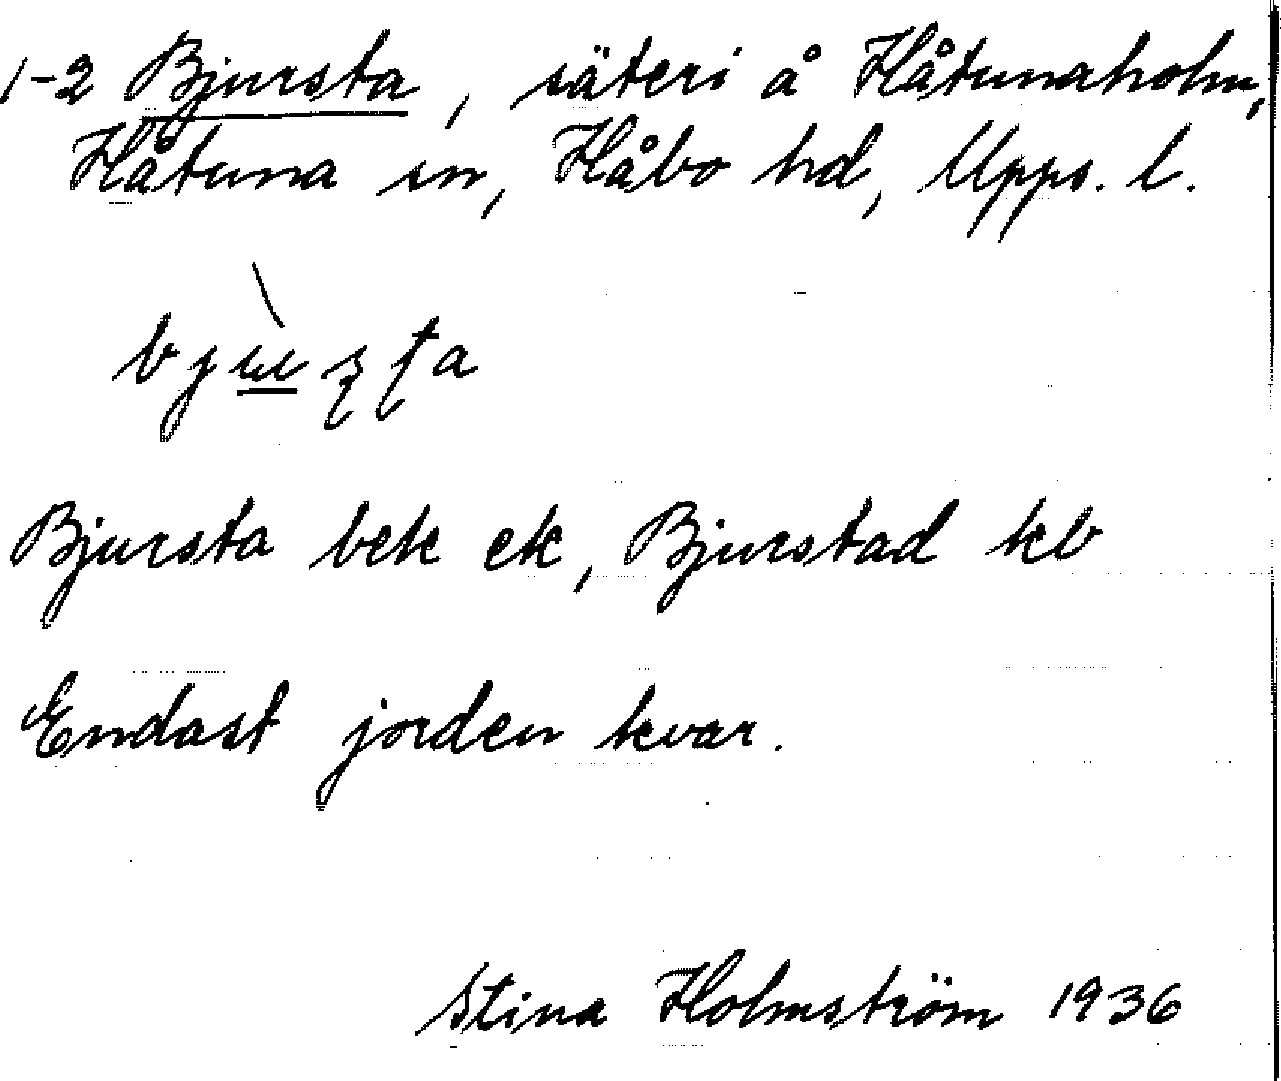 1-2 Bjursta, säteri å Håtunaholm,
Håtuna sn, Håbo hd, Upps. l.
Bjursta bek ek, Bjurstad kb
Endast jorden kvar.
Stina Holmström 1936